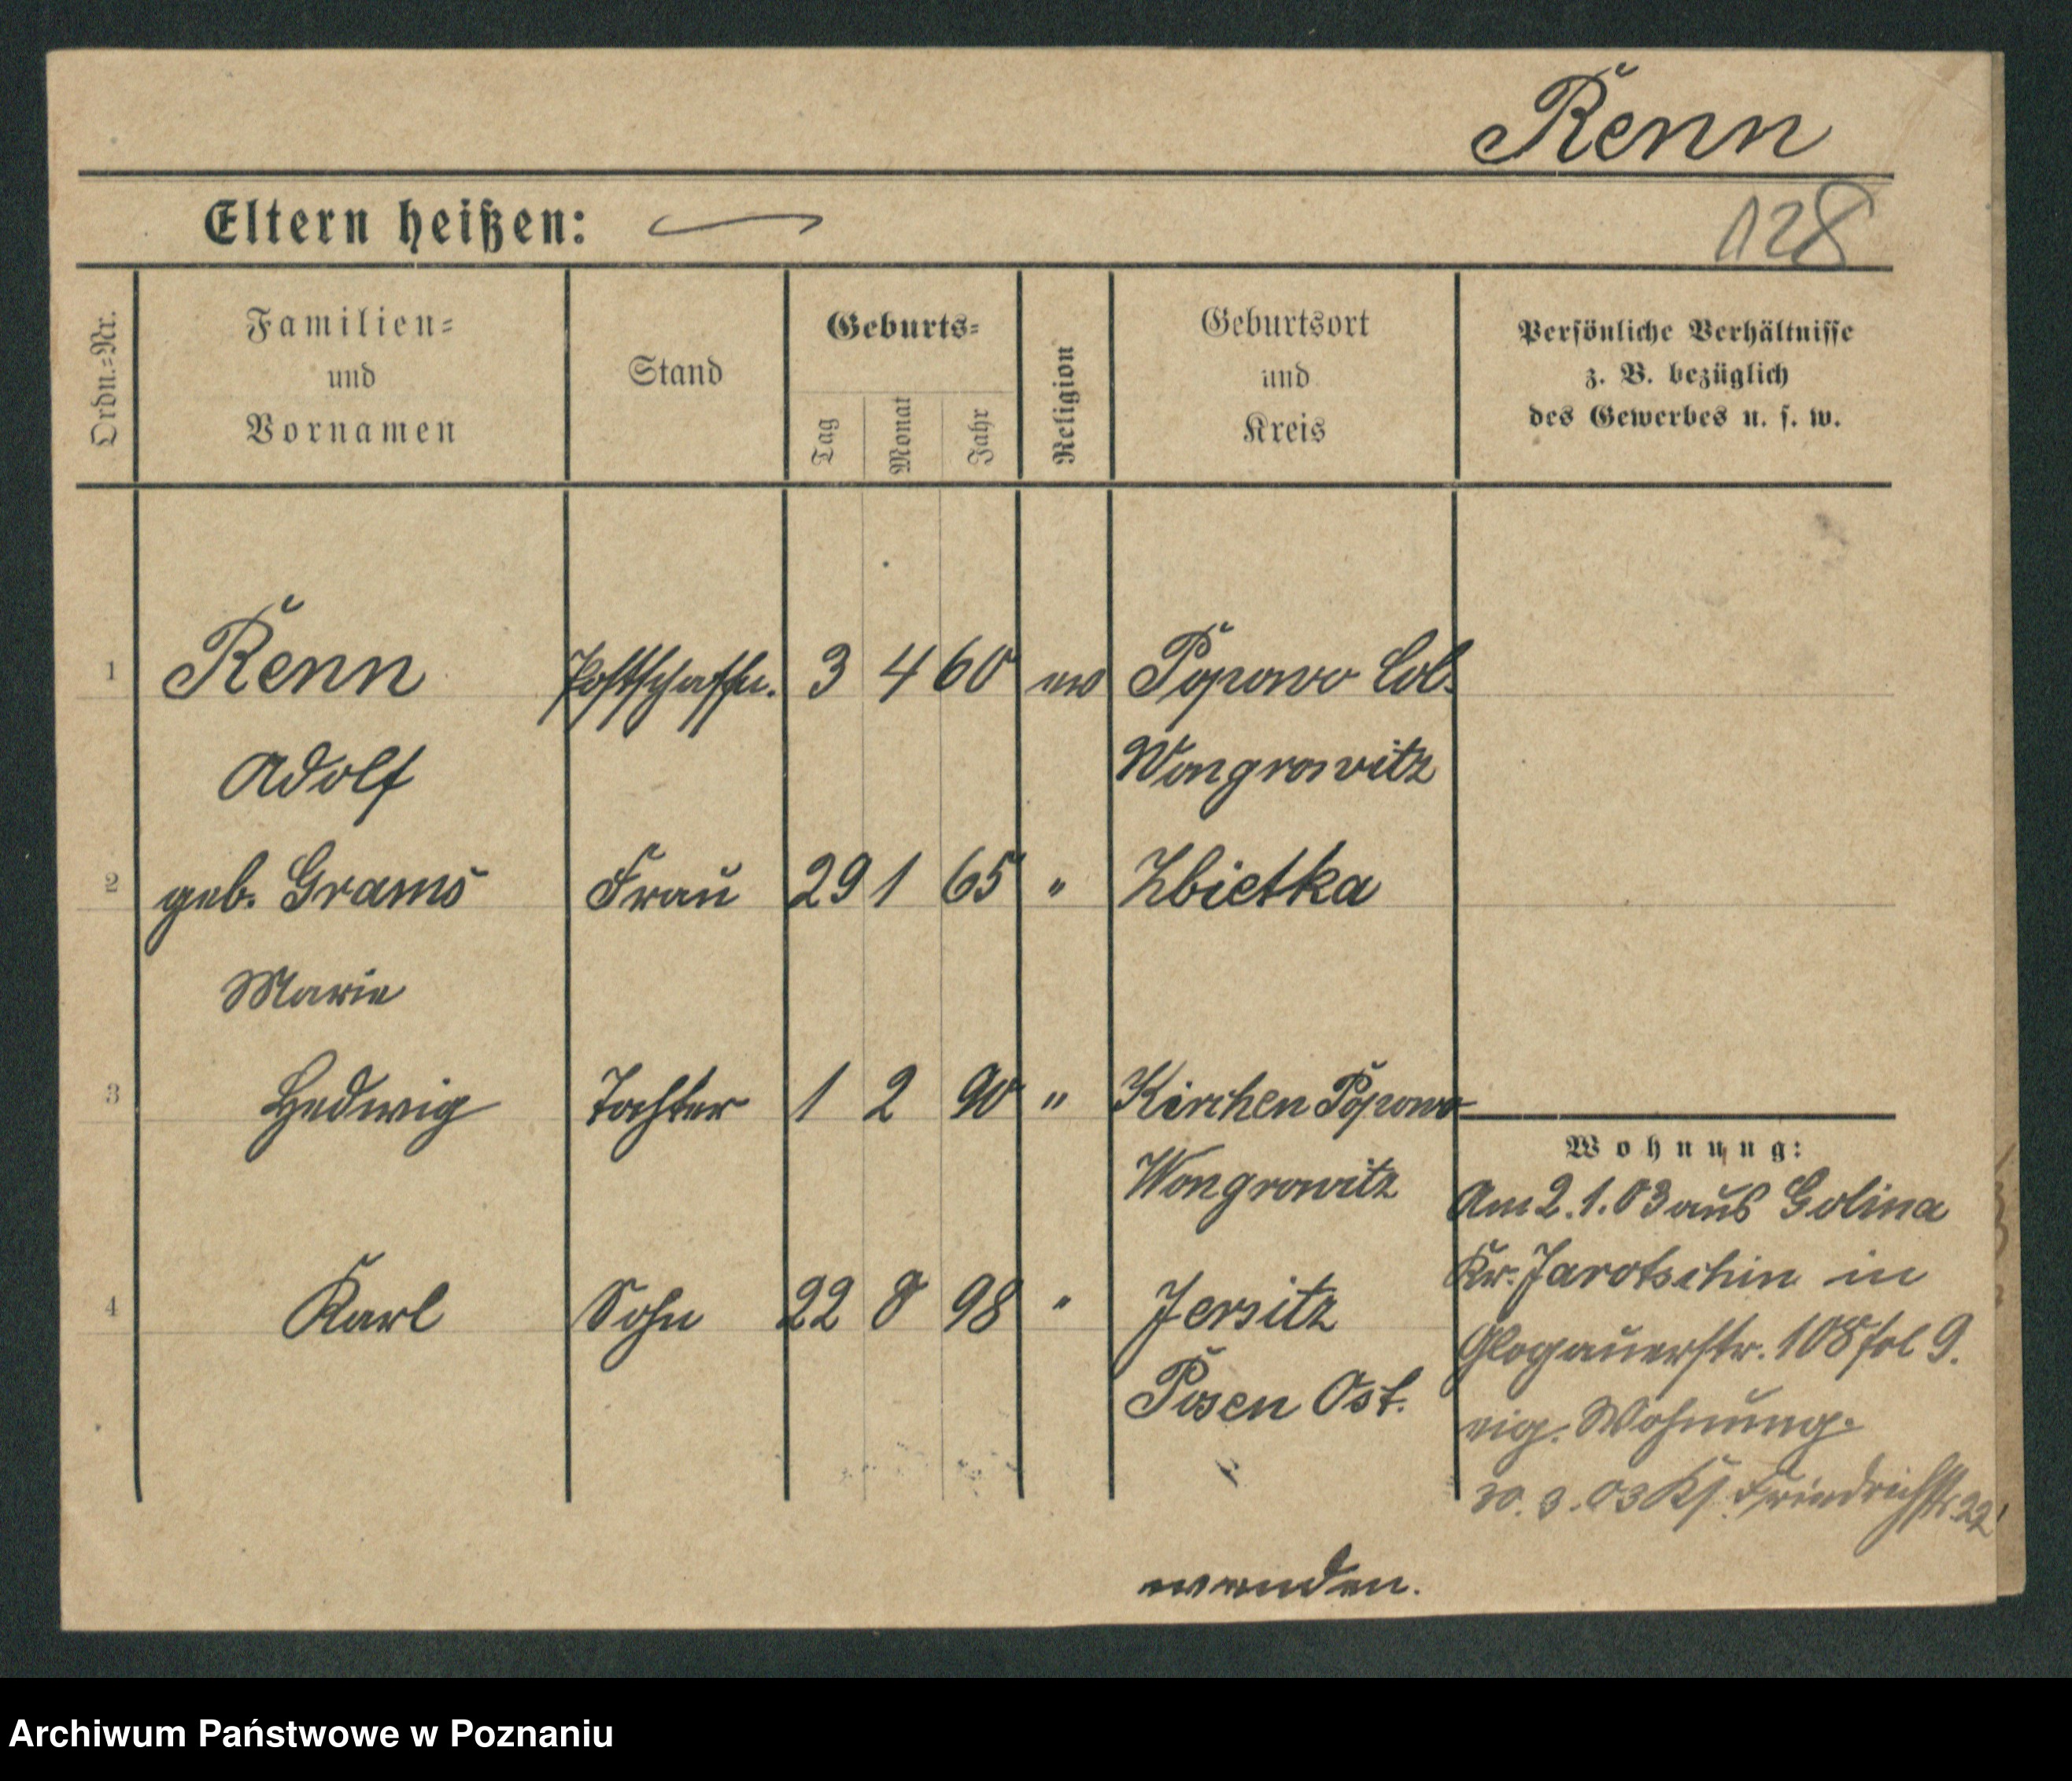 Renn
Eltern heißen:
128
Ordn.=Nr.
Familien=
und
Vornamen
Stand
Geburts=
Tag
Monat
Jahr
Religion
Geburtsort
und
Kreis
Persönliche Verhältnisse
z. B. bezüglich
des Gewerbes u. s. w.
1 Renn Postschaffn. 3 4 60 ev Popowo Col.
Adolf Wongrowitz
2 geb. Grams Frau 29 1 65 " Zbietka
Marie
3 Hedwig Tochter 1 2 90 " Kirchen Popowo
Wongrowitz
4 Karl Sohn 22 8 98 " Jersitz
Posen Ost.
Wohnung:
Am 2.1.03 aus Golina
Kr. Jarotschin in
Glogauerstr. 108 fol 9.
eig. Wohnung.
30. 3. 03 Friedrichstr. 22
wenden.
Archiwum Państwowe w Poznaniu